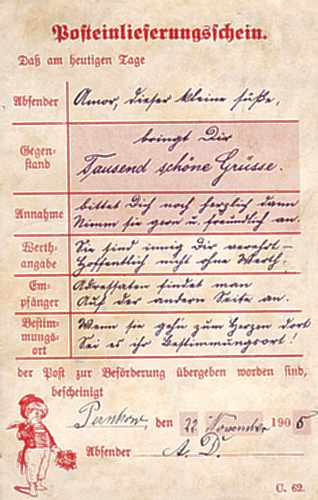 Posteinlieferungsschein.
Daß am heutigen Tage
Absender Amor, dieser kleine süße,
Gegen-
stand
bringt Dir
Tausend schöne Grüsse.
Annahme
bittet Dich noch herzlich dann
Nimm sie gern u. freundlich an.
Werth-
angabe
Sie sind innig Dir verehrt –
Hoffentlich nicht ohne Werth!
Em-
pfänger
Adressaten findet man
Auf der andern Seite an.
Bestim-
mungs-
ort
Wenn sie gehn zum Herzen dort
Sei es ihr Bestimmungsort!
der Post zur Beförderung übergeben worden sind,
bescheinigt
Pankow, den 22. November 1905
Absender A. D.
C. 62.